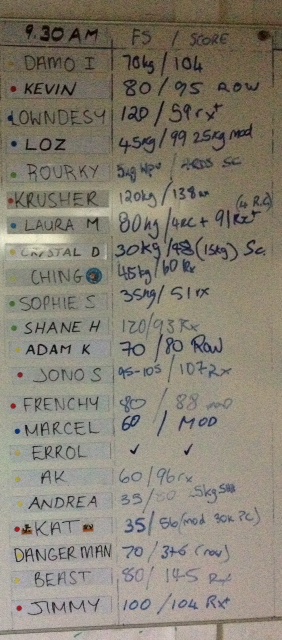 9.30 AM FS / SCORE
DAMO I 70kg / 104
KEVIN 80 / 95 ROW
LOWNDESY 120 / 59 rx+
LOZ 45kg / 99 25kg mod
ROURKY / SC
KRUSHER 120kg / 138 rx
LAURA M 80kg / 4RC + 91 Rx+ (4 RC)
CRYSTAL D 30kg / 48 (15kg) Sc.
CHING 45kg / 60 Rx
SOPHIE S 35kg / 51 rx
SHANE H 120 / 93 Rx
ADAM K 70 / 80 ROW
JONO S 95-105 / 107 Rx
FRENCHY 80 / 88 mod
MARCEL 60 / MOD
ERROL ✓ ✓
AK 60 / 96 rx
ANDREA 35 / 50
KAT 35 / 56 (mod 30k PC)
DANGERMAN 70 / 376 (row)
BEAST 80 / 145 Rx
JIMMY 100 / 104 Rx+